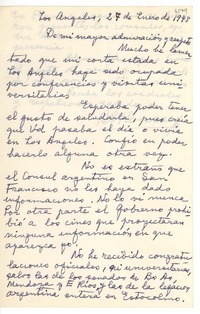 Los Angeles, 27 de Enero de 1948
De mi mayor admiración y respeto
Mucho he lamen
tado que mi corta estada en
Los Angeles haya sido ocupada
por conferencias y visitas uni
versitarias
Esperaba poder tener
el gusto de saludarla, pues creía
que Vd pasaba el día o vivía
en Los Angeles. Confío en poder
hacerlo alguna otra vez.
No es extraño que
el Consul argentino en San
Francisco no les haya dado
informaciones. No lo vi nunca
Por otra parte el Gobierno prohi
bió a los cines que proyectaran
ninguna información en que
aparezca yo!
No he recibido congratu
laciones oficiales, ni universitarias,
salvo las de los senados de
Mendoza y E Rios y las de la legación
argentina entera en Estocolmo.